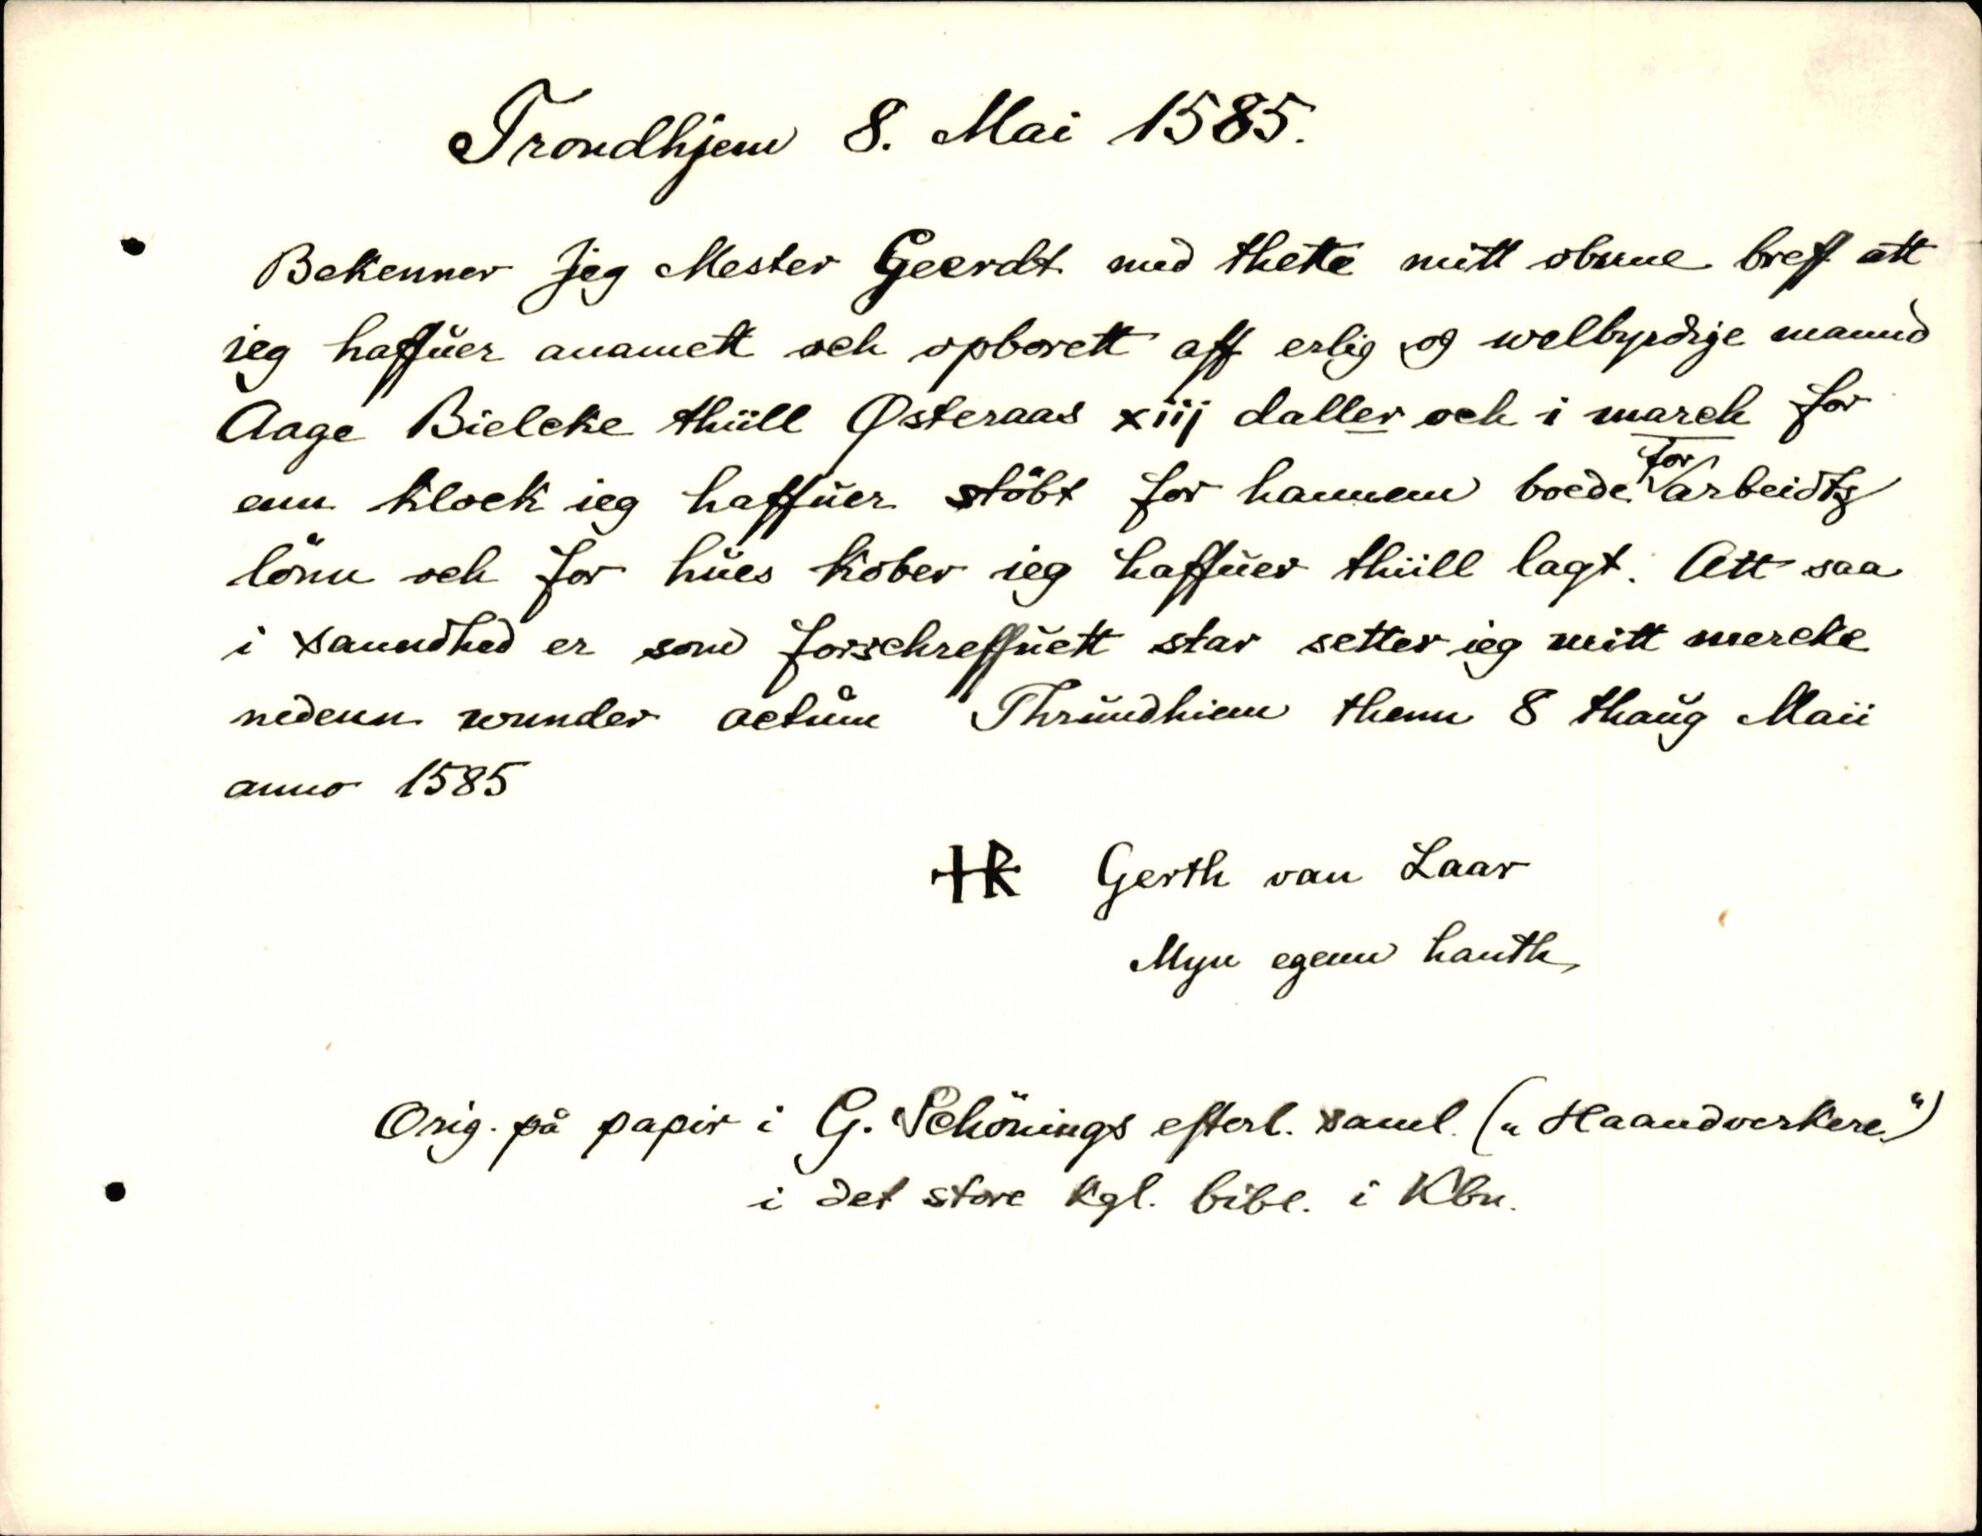 Trondhjem 8. Mai 1585.
Bekenner Jeg Mester Geerdt med thette mitt obnne breff att
ieg haffŭer anamett och opborett aff erlig og welbyrdige mannd
Aage Bielcke thiill Østeraas xiij daller och i march for
enn klock ieg haffŭer stöbt for hannem boede for arbeidtz
lönn och for hŭes kober ieg haffŭer thiill lagt. Att saa
i sanndhed er som forschreffŭett star setter ieg mitt mercke
nedenn wunder actŭm Thrŭndhiem thenn 8 thaŭg Maii
anno 1585
HR Gerth van Laar
Myn egenn hanth
Orig. på papir i G. Schönings efterl. saml. („Haandverkere“)
i det store kgl. bibl. i Kbn.